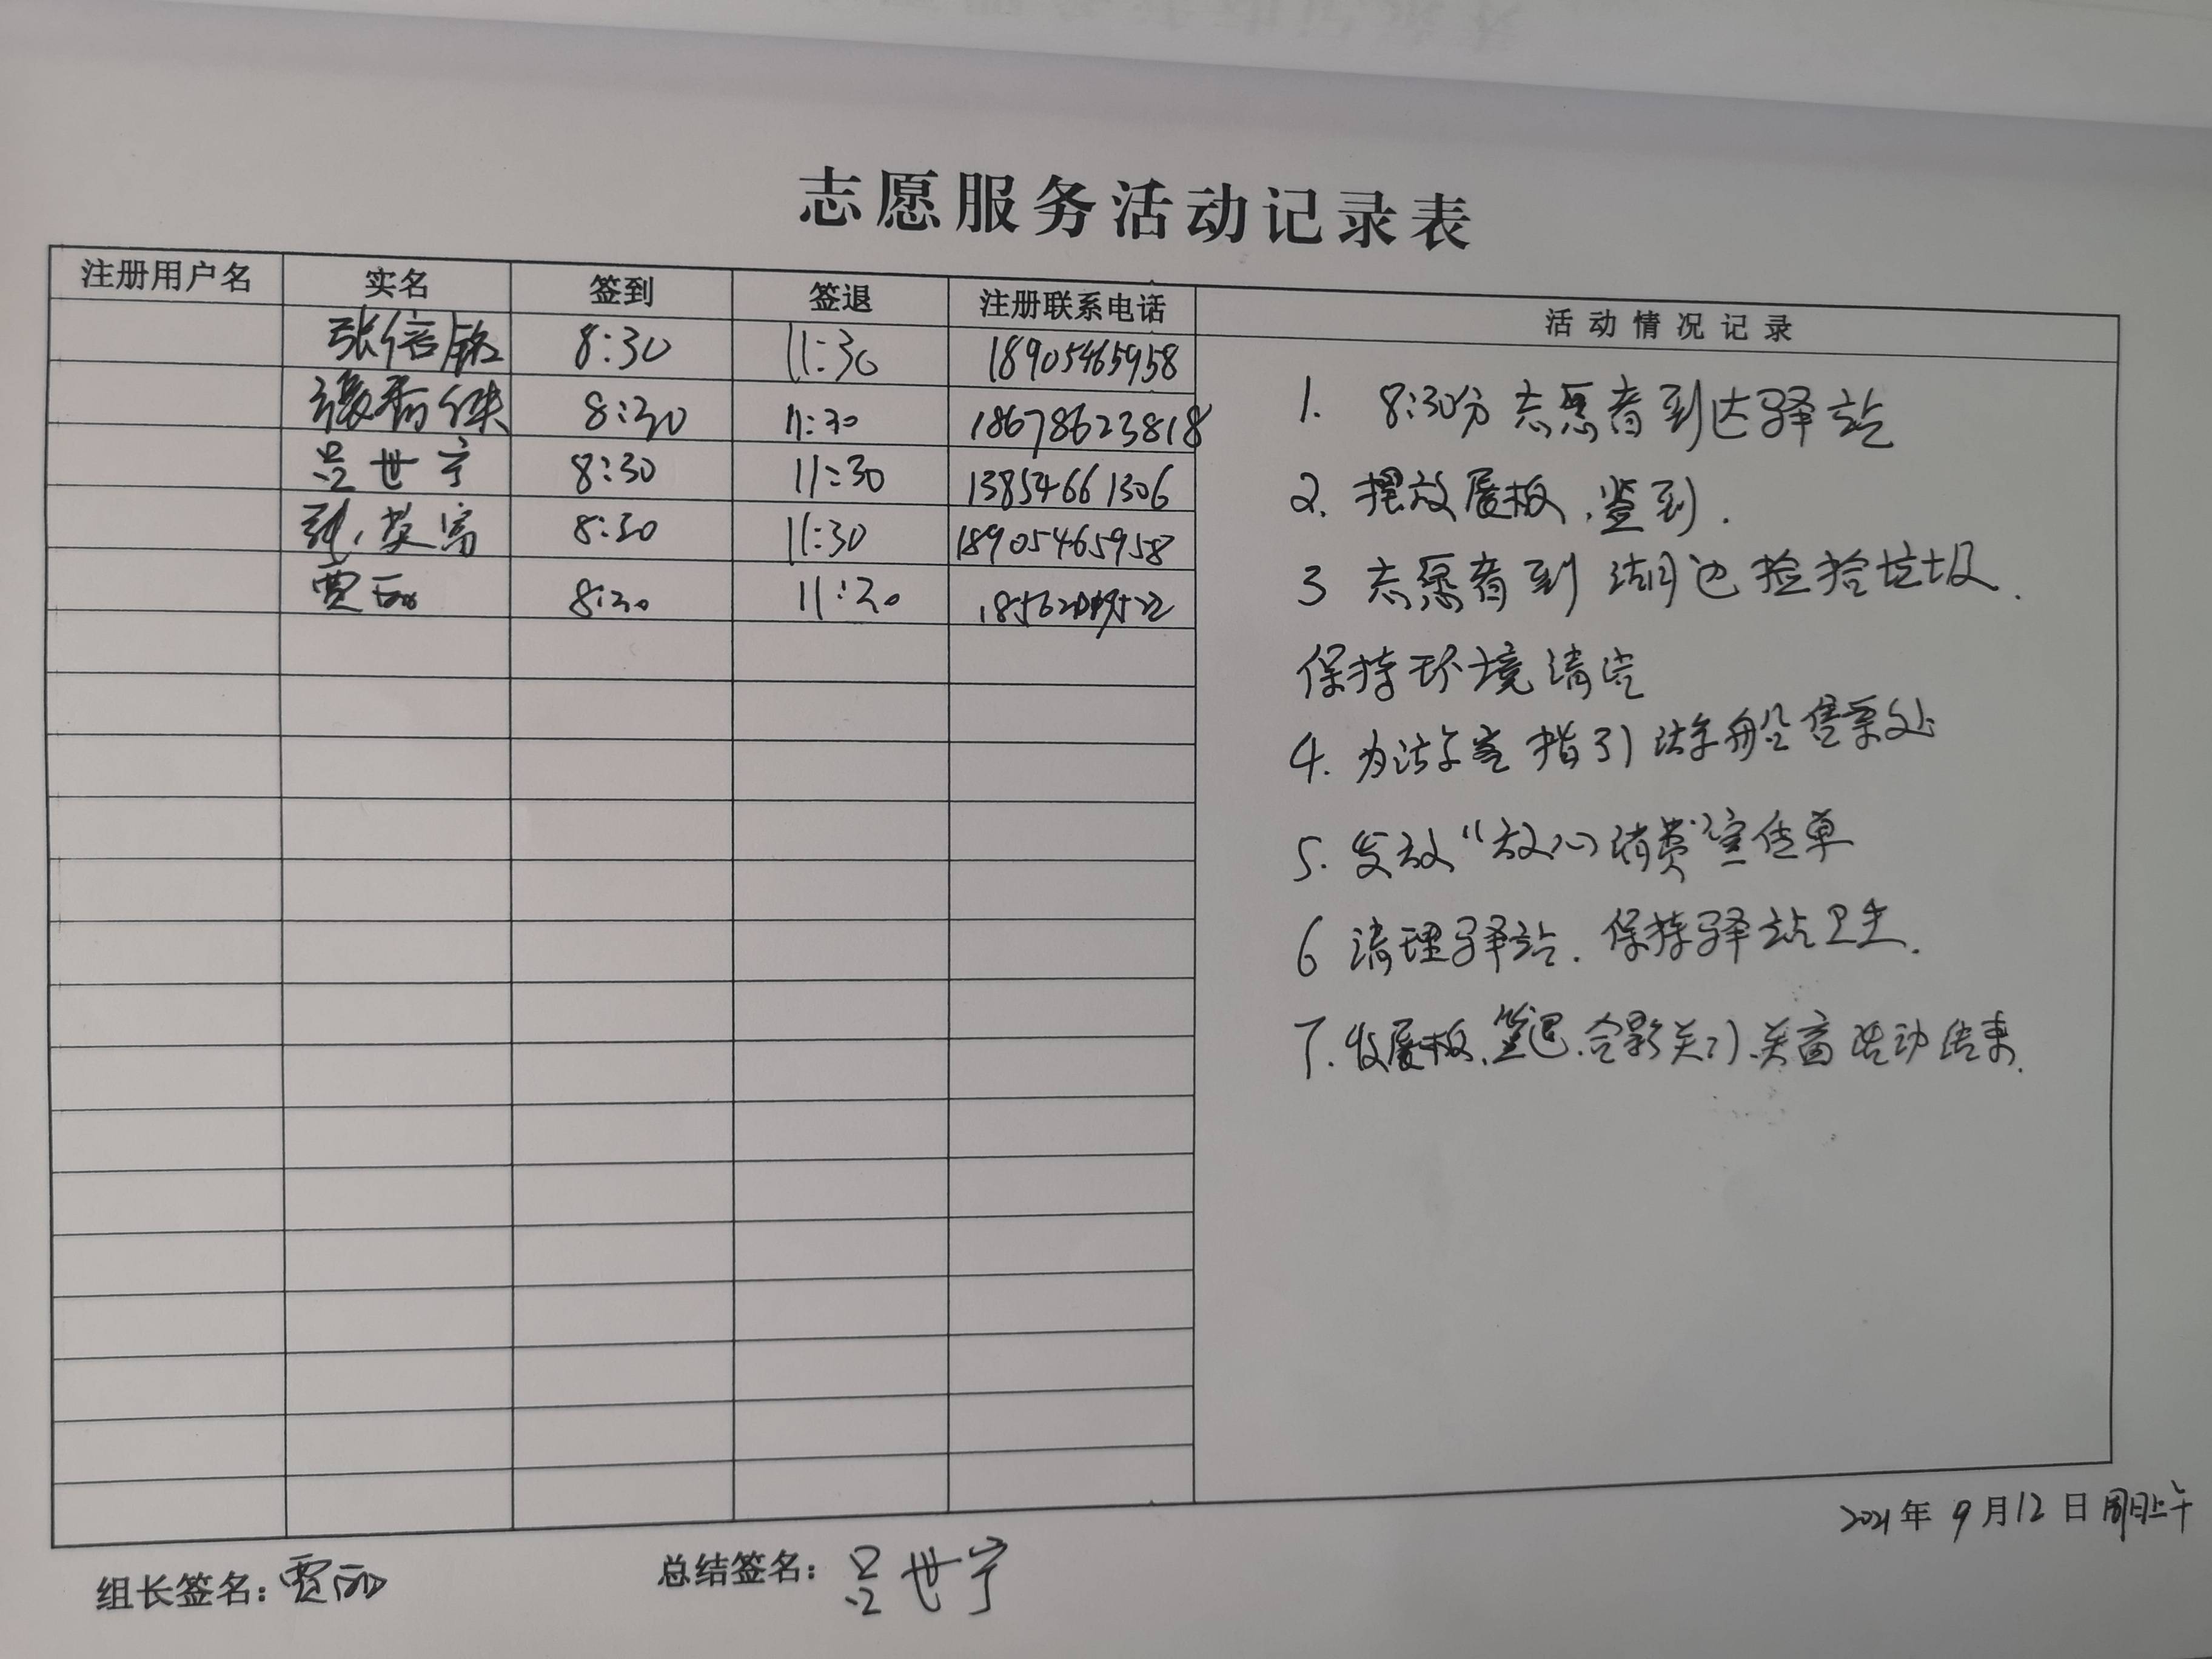 志愿服务活动记录表
注册用户名 实名 签到 签退 注册联系电话 活动情况记录
张信铭 8:30 11:30 18905465958
8:30 11:30 18678623818
吕世宁 8:30 11:30 13854661306
8:30 11:30 18905465958
贾丽 8:30 11:30
1. 8:30分志愿者到达驿站
2. 摆放展板、签到.
3 志愿者到湖边捡拾垃圾.
保持环境清洁
4. 为游客指引游船售票处
5. 发放“放心消费”宣传单
6 清理驿站. 保持驿站卫生.
7. 收展板、签退.合影关门、关窗 活动结束.
2021年9月12日周日上午
组长签名：贾丽 总结签名：吕世宁